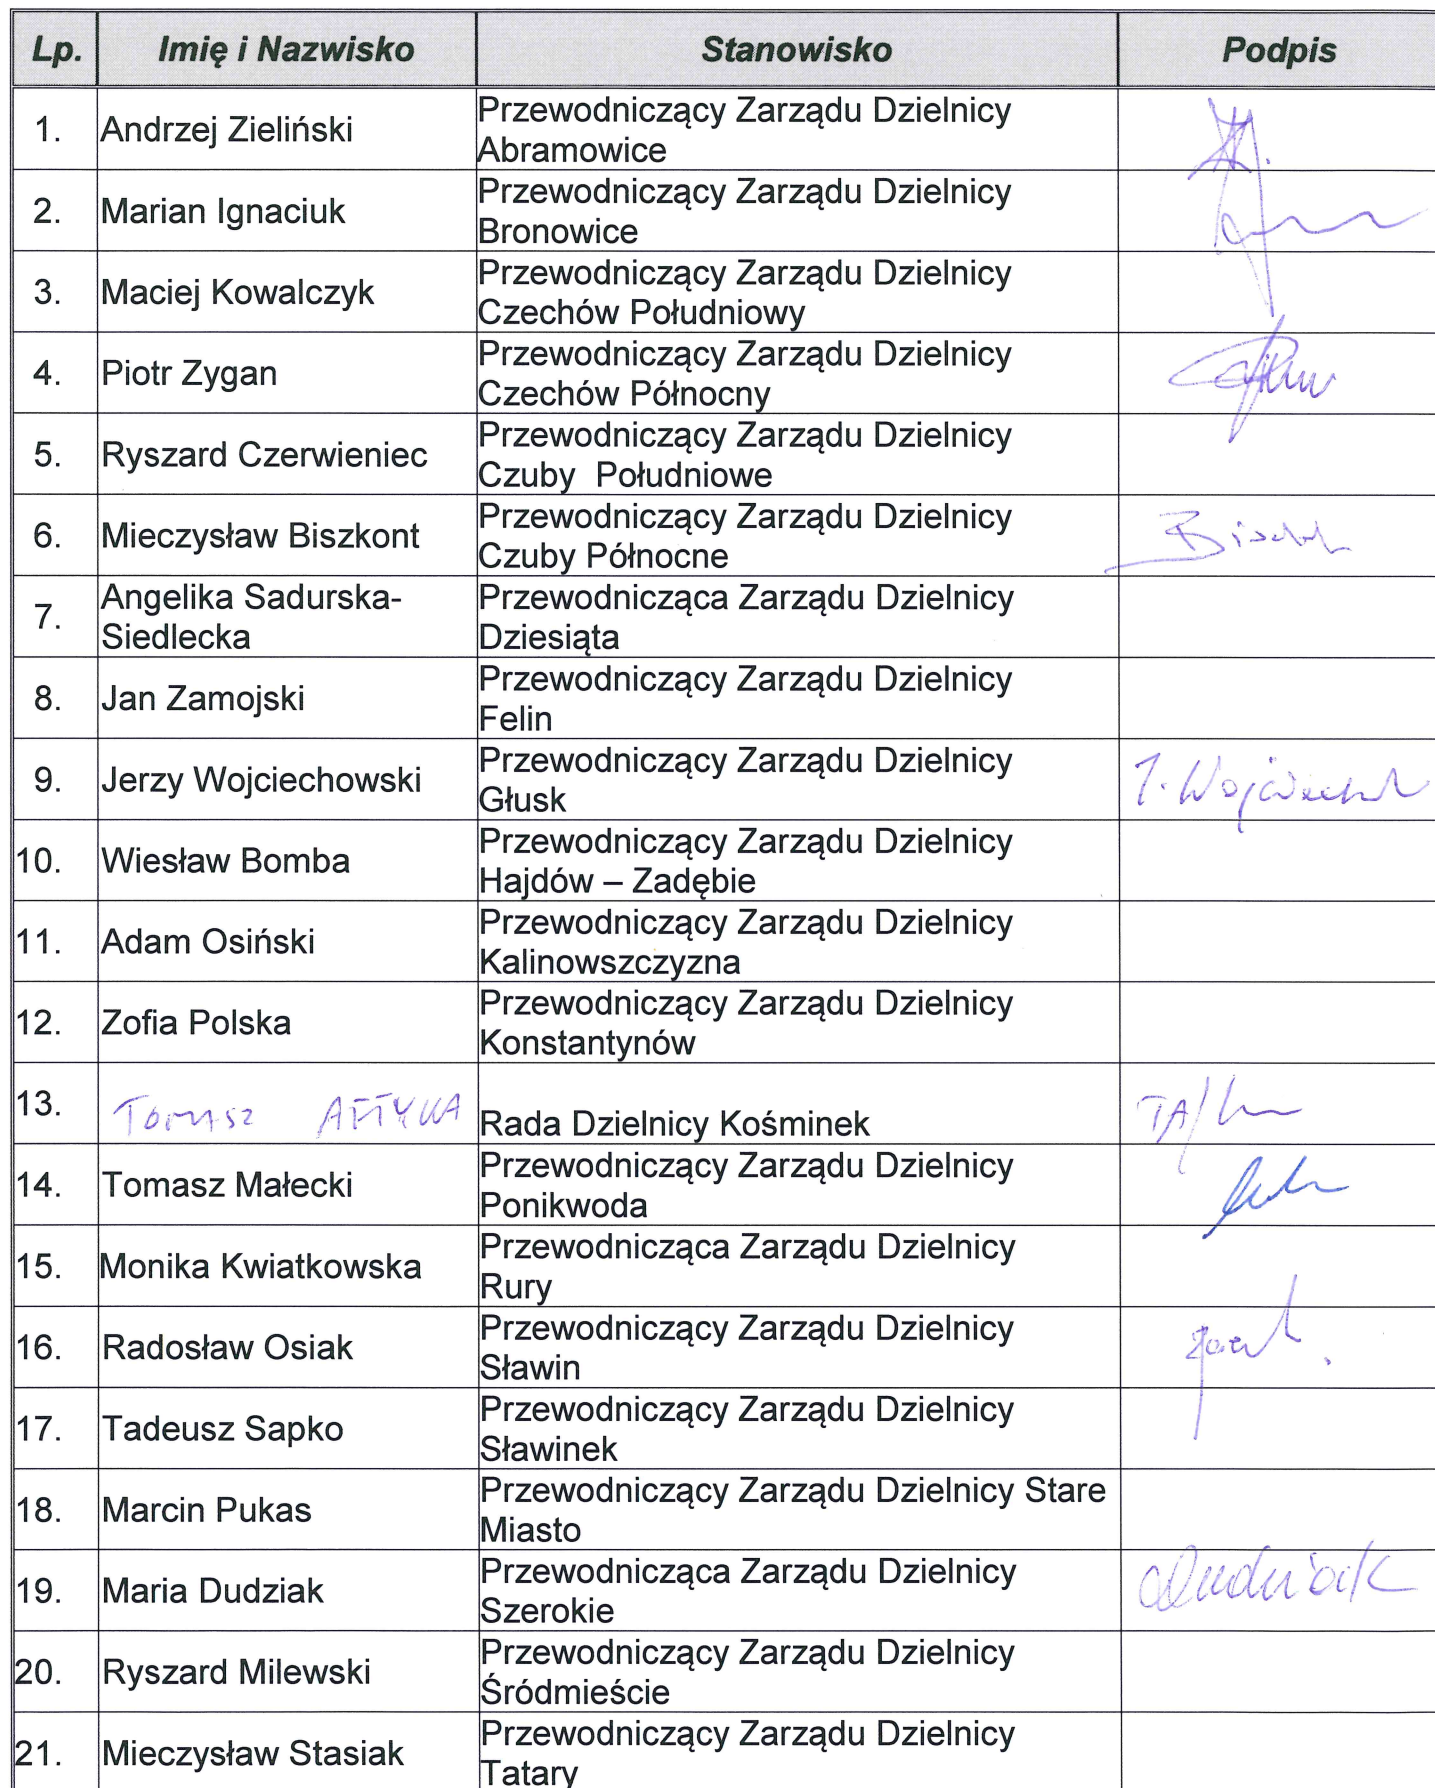 Lp. Imię i Nazwisko Stanowisko Podpis
1. Andrzej Zieliński Przewodniczący Zarządu Dzielnicy
Abramowice
2. Marian Ignaciuk Przewodniczący Zarządu Dzielnicy
Bronowice
3. Maciej Kowalczyk Przewodniczący Zarządu Dzielnicy
Czechów Południowy
4. Piotr Zygan Przewodniczący Zarządu Dzielnicy
Czechów Północny
5. Ryszard Czerwieniec Przewodniczący Zarządu Dzielnicy
Czuby Południowe
6. Mieczysław Biszkont Przewodniczący Zarządu Dzielnicy
Czuby Północne
7. Angelika Sadurska- Przewodnicząca Zarządu Dzielnicy
Siedlecka Dziesiąta
8. Jan Zamojski Przewodniczący Zarządu Dzielnicy
Felin
9. Jerzy Wojciechowski Przewodniczący Zarządu Dzielnicy
Głusk
10. Wiesław Bomba Przewodniczący Zarządu Dzielnicy
Hajdów – Zadębie
11. Adam Osiński Przewodniczący Zarządu Dzielnicy
Kalinowszczyzna
12. Zofia Polska Przewodniczący Zarządu Dzielnicy
Konstantynów
13. TOMASZ Rada Dzielnicy Kośminek
14. Tomasz Małecki Przewodniczący Zarządu Dzielnicy
Ponikwoda
15. Monika Kwiatkowska Przewodnicząca Zarządu Dzielnicy
Rury
16. Radosław Osiak Przewodniczący Zarządu Dzielnicy
Sławin
17. Tadeusz Sapko Przewodniczący Zarządu Dzielnicy
Sławinek
18. Marcin Pukas Przewodniczący Zarządu Dzielnicy Stare
Miasto
19. Maria Dudziak Przewodnicząca Zarządu Dzielnicy
Szerokie
20. Ryszard Milewski Przewodniczący Zarządu Dzielnicy
Śródmieście
21. Mieczysław Stasiak Przewodniczący Zarządu Dzielnicy
Tatary